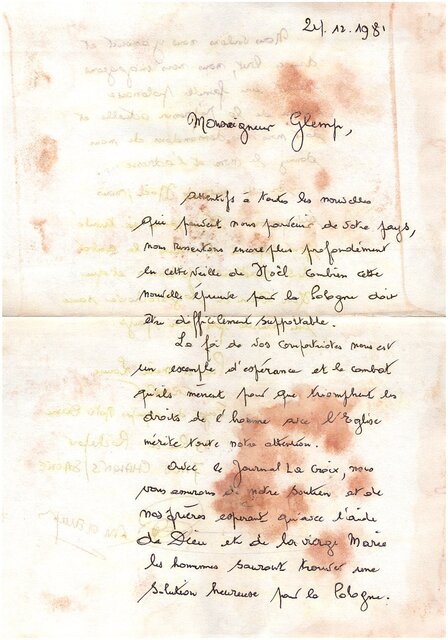 24.12.1981
Monseigneur Glemp,
attentifs à toutes les nouvelles
qui peuvent nous parvenir de votre pays,
nous ressentons encore plus profondément
en cette veille de Noël combien cette
nouvelle épreuve pour la Pologne doit
être difficilement supportable.
La foi de vos compatriotes nous est
un exemple d'espérance et le combat
qu'ils mènent pour que triomphent les
droits de l'homme avec l'Eglise
mérite toute notre attention.
Avec le Journal La Croix, nous
vous assurons de notre soutien et de
nos prières espérant qu'avec l'aide
de Dieu et de la vierge Marie
les hommes sauront trouver une
solution heureuse pour la Pologne.